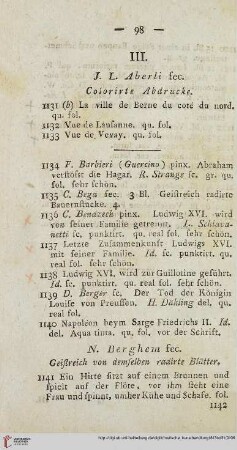 — 98 —
III.
J. L. Aberli fec.
Colorirte Abdrucke.
1131 (b) La ville de Berne du coté du nord.
qu. fol.
1132 Vue de Lausanne. qu. fol.
1133 Vue de Vevay. qu. fol.
1134 F. Barbieri (Guercino) pinx. Abraham
verstösst die Hagar. R. Strange sc. gr. qu.
fol. sehr schön.
1135 C. Bega fec. 3 Bl. Geistreich radirte
Bauernstücke. 4.
1136 C. Benazech pinx. Ludwig XVI. wird
von seiner Familie getrennt. L. Schiavo-
netti sc. punktirt. qu. real fol. sehr schön.
1137 Letzte Zusammenkunft Ludwigs XVI.
mit seiner Familie. Id. sc. punktirt. qu.
real fol. sehr schön.
1138 Ludwig XVI. wird zur Guillotine geführt.
Id. sc. punktirt. qu. real fol. sehr schön.
1139 D. Berger sc. Der Tod der Königin
Louise von Preussen. H. Dähling del. qu.
real fol.
1140 Napoléon beym Sarge Friedrichs II. Id.
del. Aqua tinta. qu. fol. vor der Schrift.
N. Berghem fec.
Geistreich von demselben radirte Blätter.
1141 Ein Hirte sitzt auf einem Brunnen und
spielt auf der Flöte, vor ihm steht eine
Frau und spinnt, umher Kühe und Schafe. fol.
1142